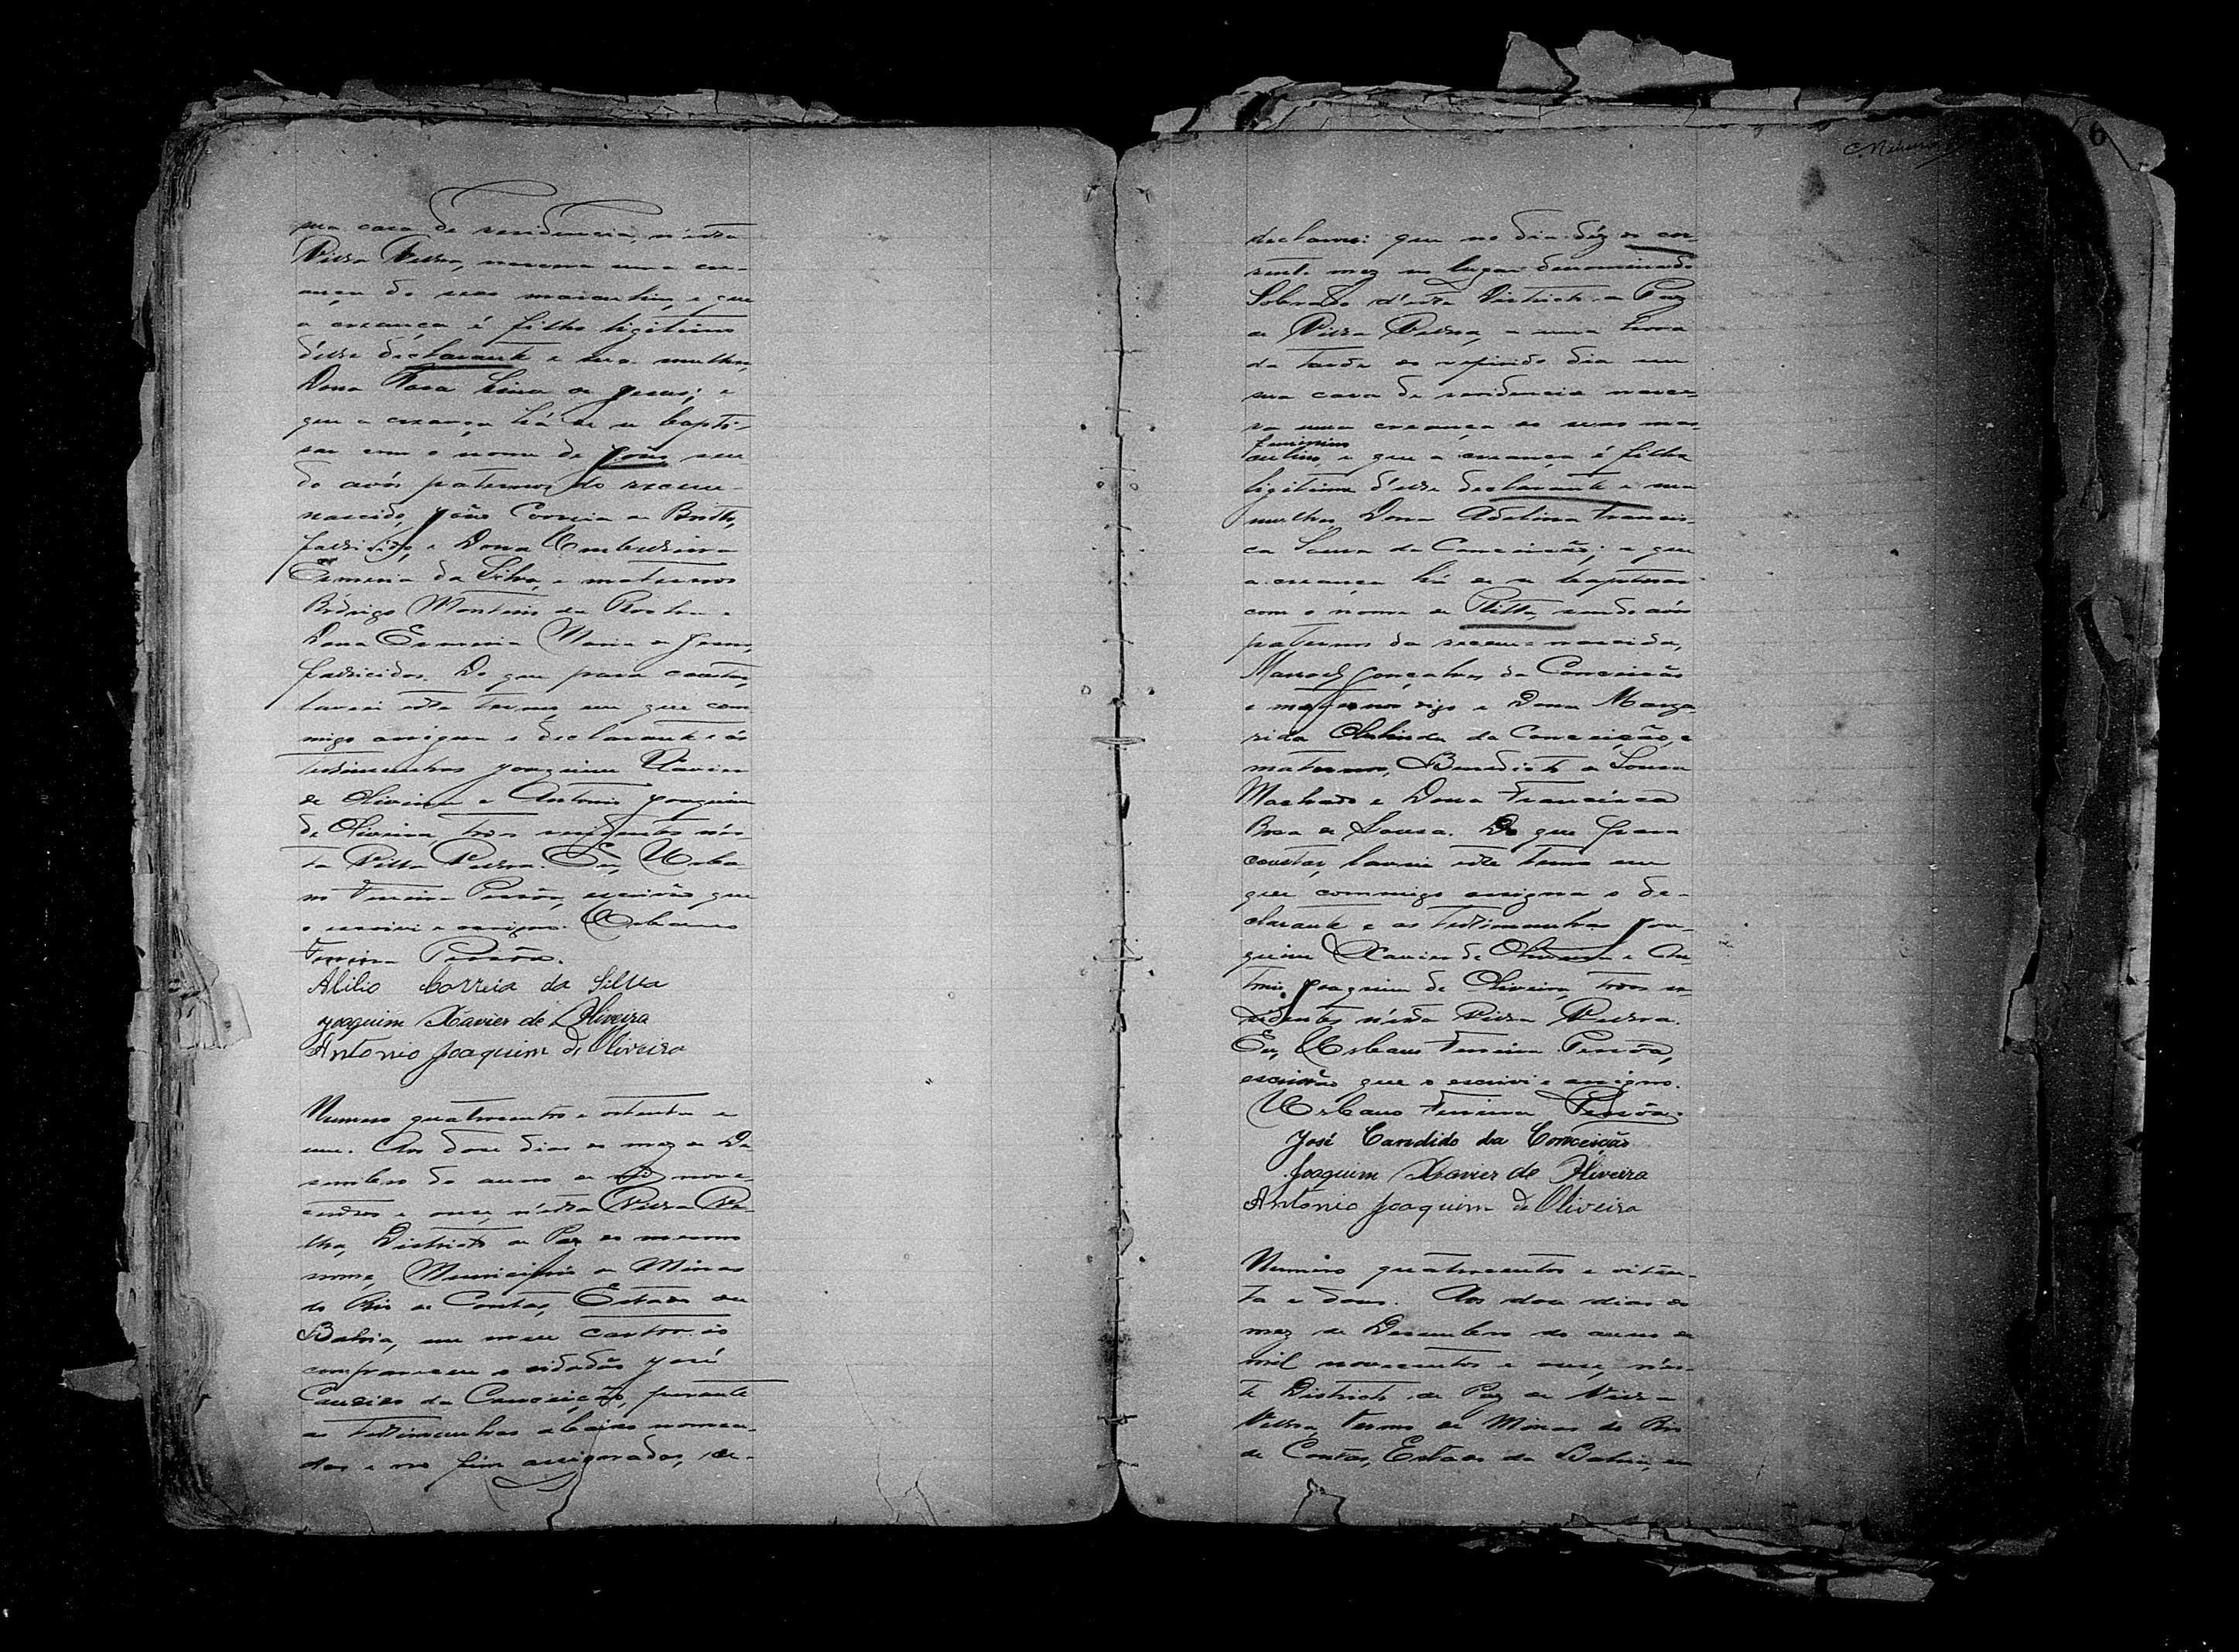 sua casa de residencia, n'esta
Villa Velha, nasceu uma cre-
ança do sexo masculino, e que
a creança é filho ligitimo
d'elle declarante e sua mulher,
Dona Rosa Lina de Jesus; e
que a creança há de se bapti-
sar com o nome de João, sen-
do avós paternos do recem-
nascido, João Correia de Britto,
fallecido, e Dona Umbelina
Ermeria da Silva, e maternos
Rodrigo Monteiro da Rocha e
Dona Ermeria Maria de Jesus,
fallecidos. Do que para constar,
lavrei este termo em que com
migo assigna o declarante e as
testimunhas Joaquim Xavier
de Oliveira e Antonio Joaquim
de Oliveira, todos residentes nes-
ta Villa Velha. Eu, Urba-
no Ferreira Pessôa, escrivão que
o escrivi e assigno. Urbano
Ferreira Pessôa.
Abilio Correia da Silva
Joaquim Xavier de Oliveira
Antonio Joaquim de Oliveira
Numero quatrocentos e oitenta e
um. Aos dose dias do mez de De
sembro do anno de mil nove-
centos e onse, n'esta Villa Ve-
lha, Districto de Paz do mesmo
nome, Municipio de Minas
do Rio de Contas, Estado da
Bahia, em meu cartorio
compareceu o cidadão José
Candido da Conceição, perante
as testimunhas abaixo nomea-
das e no fim assignadas, de-
6
declarou: que no dia déz do cor-
rente mez no lugar denominado
Sobrado d'este Districto de Paz
de Villa Velha, a uma hora
da tarde do referido dia em
sua casa de residencia nasce-
ra uma creança do sexo mas
feminino
culino, e que a creança é filha
ligitima d'elle declarante e sua
mulher, Dona Adelina Francis-
ca Sousa da Conceição; e que
a creança há de se baptisar
com o nome de Ritta, sendo avós
paternos da recem-nascida,
Manoel Gonçalves da Conceição
e maternos digo e Dona Marga
rida Olinda da Conceição, e
maternos, Benedicto de Sousa
Machado e Dona Francisca
Rosa de Sousa. Do que para
constar, lavrei este termo em
que commigo assigna o de-
clarante e as testimunhas Joa-
quim Xavier de Oliveira e An-
tonio Joaquim de Oliveira, todos re-
sidentes n'esta Villa Velha.
Eu, Urbano Ferreira Pessôa,
escrivão que o escrivi e assigno.
Urbano Ferreira Pessôa.
José Candido da Conceição
Joaquim Xavier de Oliveira
Antonio Joaquim de Oliveira
Numero quatrocentos e oiten-
ta e dous. Aos dose dias do
mez de Desembro do anno de
mil novecentos e onse, nes-
te Districto de Paz de Villa
Velha, termo de Minas do Rio
de Contas, Estado da Bahia, em